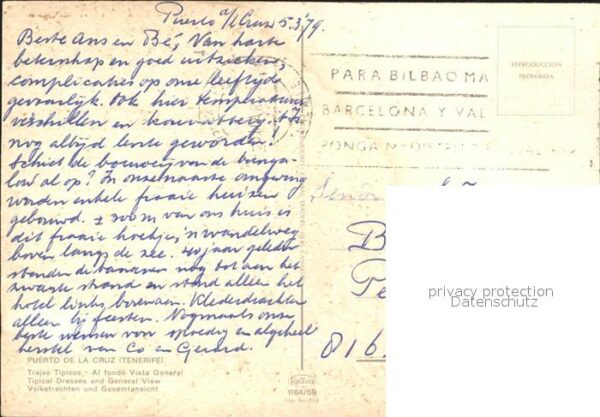 Puerto d/l Cruz 5.3.'79.
Beste Ans en Bé, Van harte
beterschap en goed uitzieken,
complicaties op onze leeftijd
gevaarlijk. Ook hier temperatuur
verschillen en kou
nog altijd lente geworden.
Schiet de bouwerij van de bunga-
low al op? In onze naaste omgeving
worden enkele fraaie huizen
gebouwd. ± 300 m van ons huis is
dit fraaie hoekje, 'n wandelweg
boven langs de zee. 40 jaar geleden
stonden de bananen nog tot aan het
zwarte strand en stond alleen het
hotel links bovenaan. Klederdrachten
alleen bij feesten. Nogmaals onze
beste wensen voor spoedig en algeheel
herstel van Co en Gerard.
PUERTO DE LA CRUZ (TENERIFE)
Trajes Tipicos - Al fondo Vista General
Tipical Dresses and General View
Volkstrachten und Gesamtansicht
1164/59
REPRODUCCION
PROHIBIDA
PARA BILBAO MA
BARCELONA Y VAL
PONGA
B
Pe
816
privacy protection
Datenschutz